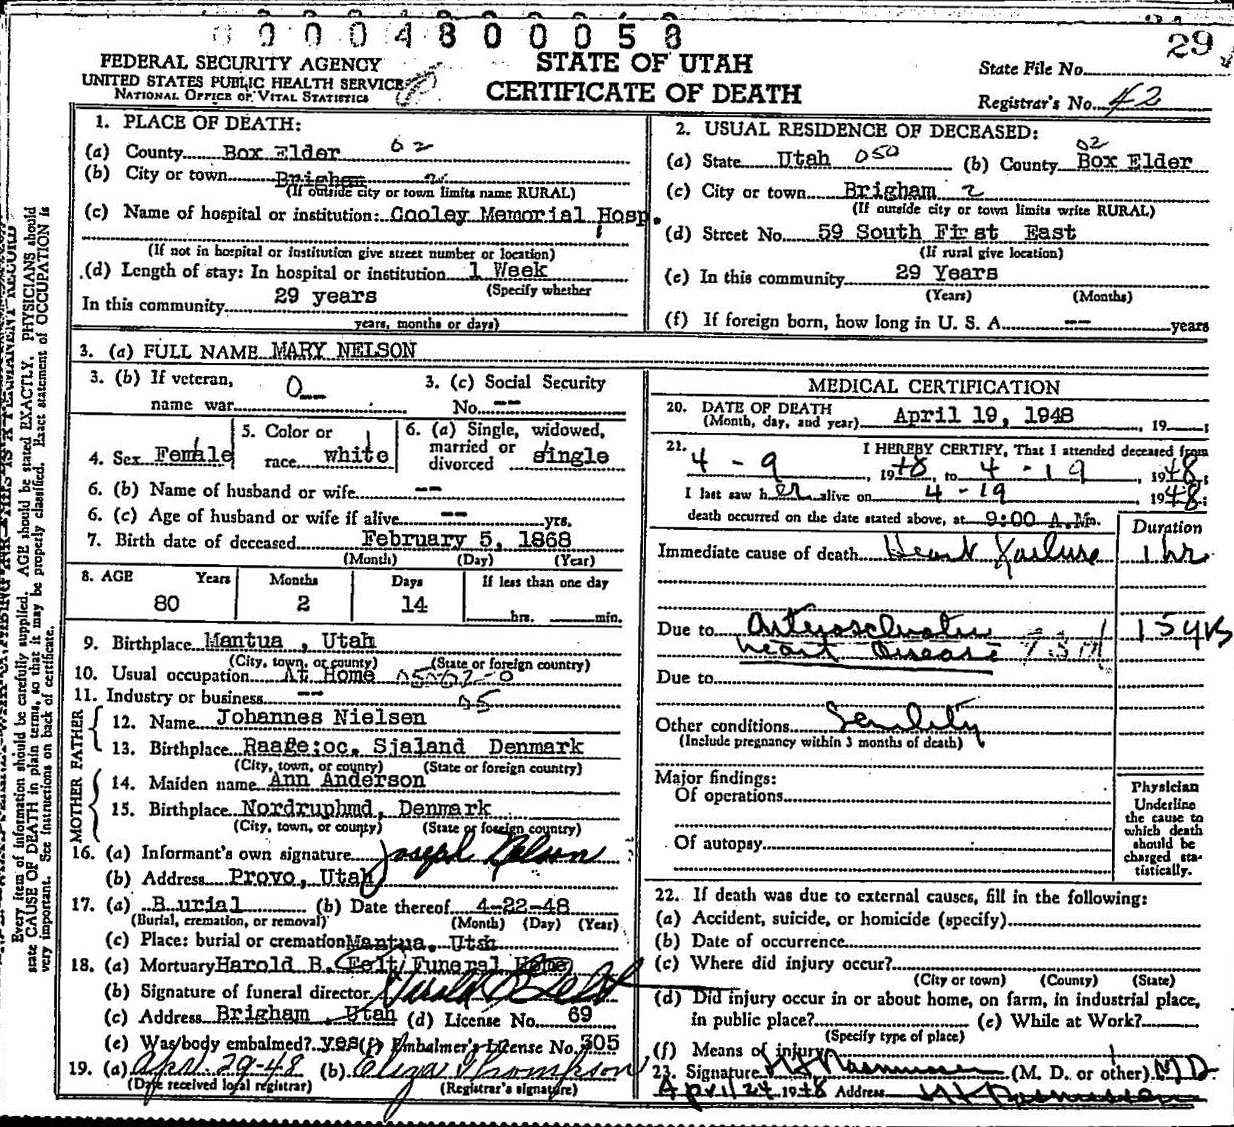 0 0 0 0 4 8 0 0 0 5 8
29
FEDERAL SECURITY AGENCY
UNITED STATES PUBLIC HEALTH SERVICE
NATIONAL OFFICE OF VITAL STATISTICS
STATE OF UTAH
CERTIFICATE OF DEATH
State File No.
Registrar's No. 42
1. PLACE OF DEATH:
(a) County Box Elder 02
(b) City or town Brigham 2
(If outside city or town limits name RURAL)
(c) Name of hospital or institution: Cooley Memorial Hosp.
(If not in hospital or institution give street number or location)
(d) Length of stay: In hospital or institution 1 Week
(Specify whether
In this community 29 years
years, months or days)
2. USUAL RESIDENCE OF DECEASED:
02
(a) State Utah 050 (b) County Box Elder
(c) City or town Brigham 2
(If outside city or town limits write RURAL)
(d) Street No. 59 South First East
(If rural give location)
(e) In this community 29 Years
(Years) (Months)
(f) If foreign born, how long in U. S. A. -- years
3. (a) FULL NAME MARY NELSON
3. (b) If veteran, name war 0
3. (c) Social Security No. --
4. Sex Female
5. Color or race white
6. (a) Single, widowed, married or divorced single
6. (b) Name of husband or wife --
6. (c) Age of husband or wife if alive -- yrs.
7. Birth date of deceased February 5, 1868
(Month) (Day) (Year)
8. AGE Years Months Days If less than one day
80 2 14 hrs. min.
9. Birthplace Mantua, Utah
(City, town, or county) (State or foreign country)
10. Usual occupation At Home
11. Industry or business --
FATHER
12. Name Johannes Nielsen
13. Birthplace Raage;oc, Sjaland Denmark
(City, town, or county) (State or foreign country)
MOTHER
14. Maiden name Ann Anderson
15. Birthplace Nordruphmd, Denmark
(City, town, or county) (State or foreign country)
16. (a) Informant's own signature Joseph Nelson
(b) Address Provo, Utah
17. (a) Burial (b) Date thereof 4-22-48
(Burial, cremation, or removal) (Month) (Day) (Year)
(c) Place: burial or cremation Mantua, Utah
18. (a) Mortuary Harold B. Felt Funeral Home
(b) Signature of funeral director Harold B Felt
(c) Address Brigham, Utah (d) License No. 69
(e) Was body embalmed? yes (f) Embalmer's License No. 305
19. (a) Apr. 29-48 (b) Eliza Thompson
(Date received local registrar) (Registrar's signature)
MEDICAL CERTIFICATION
20. DATE OF DEATH April 19, 1948, 19
(Month, day, and year)
21. I HEREBY CERTIFY, That I attended deceased from
4 - 9, 1948, to 4 - 19, 1948;
I last saw her alive on 4 - 19 1948;
death occurred on the date stated above, at 9:00 A.M.
Duration
Immediate cause of death Heart Failure 1 hr
Due to Arteriosclerotic heart Disease 15 yrs
Due to
Other conditions Senility
(Include pregnancy within 3 months of death)
Major findings:
Of operations
Of autopsy
Physician
Underline the cause to which death should be charged statistically.
22. If death was due to external causes, fill in the following:
(a) Accident, suicide, or homicide (specify)
(b) Date of occurrence
(c) Where did injury occur?
(City or town) (County) (State)
(d) Did injury occur in or about home, on farm, in industrial place,
in public place? (e) While at Work?
(Specify type of place)
(f) Means of injury
23. Signature H J Rasmussen (M. D. or other) M D.
April 24 1948 Address
Every item of information should be carefully supplied. AGE should be stated EXACTLY. PHYSICIANS should
state CAUSE OF DEATH in plain terms, so that it may be properly classified. Exact statement of OCCUPATION is
very important. See instructions on back of certificate.